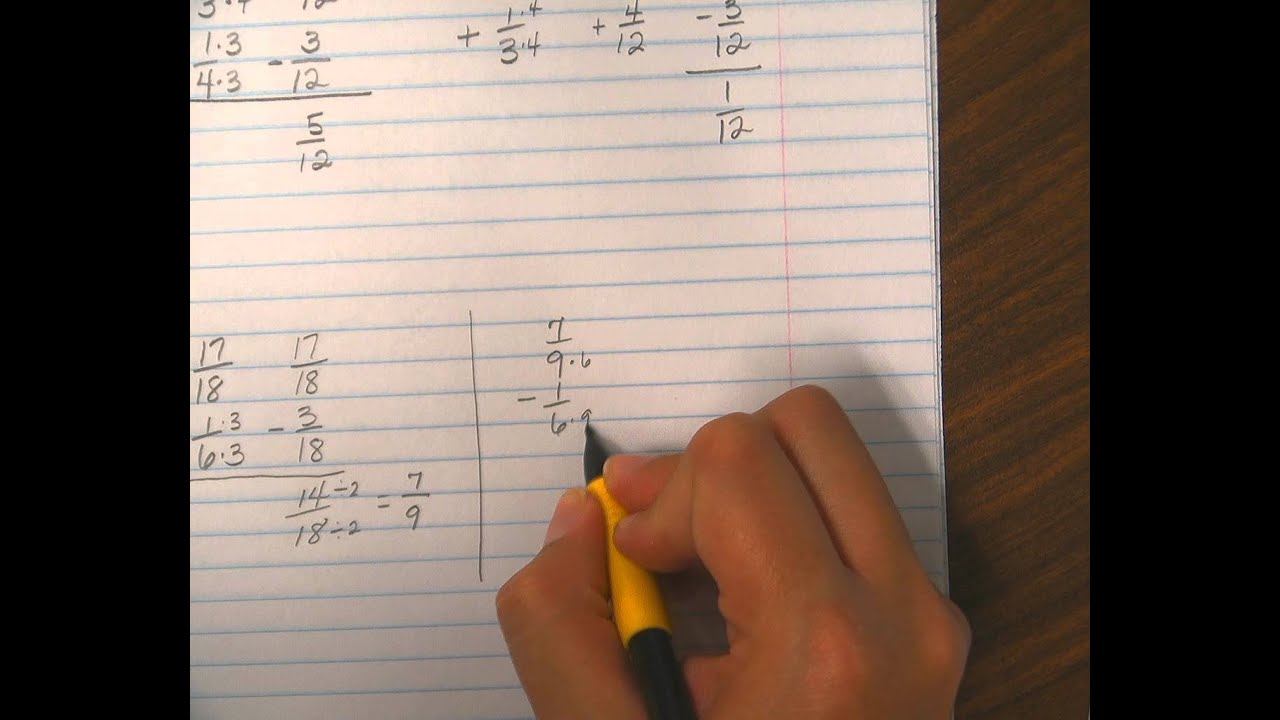 3·4 12
1·3/4·3 - 3/12
5/12
+ 1·4/3·4 + 4/12 - 3/12
1/12
17/18 17/18
1·3/6·3 - 3/18
14÷2/18÷2 = 7/9
7/9·6
- 1/6·9